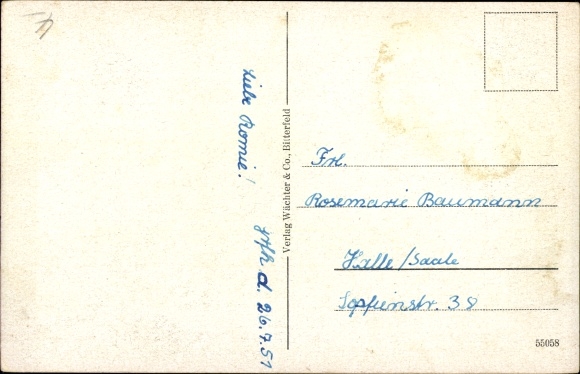 Liebe Romie!
d. 26.7.51
Verlag Wächter & Co., Bitterfeld
Frl.
Rosemarie Baumann
Halle/Saale
Sophienstr. 38
55058